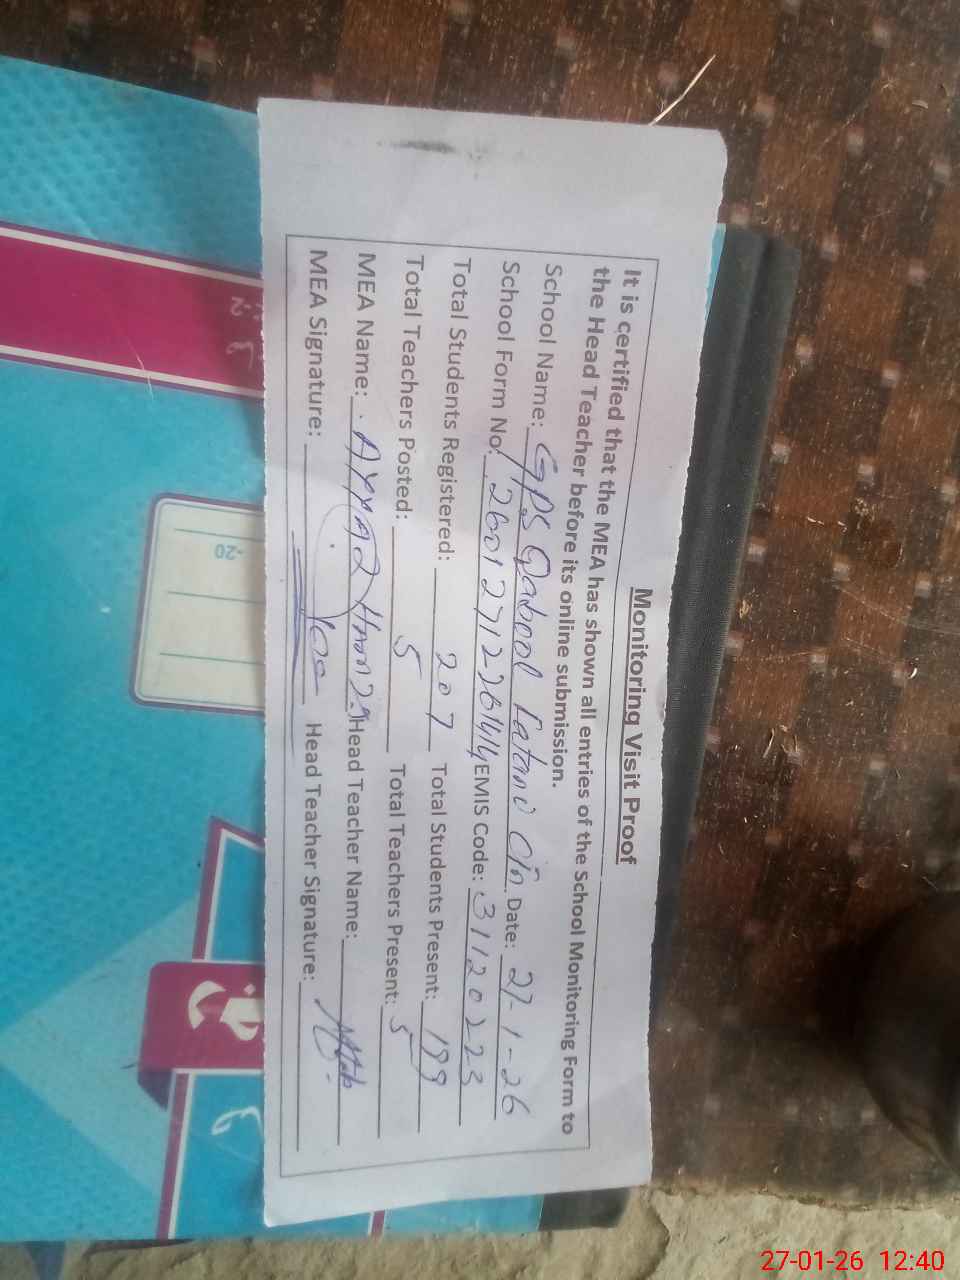 Monitoring Visit Proof
It is certified that the MEA has shown all entries of the School Monitoring Form to
the Head Teacher before its online submission.
School Name: GPS Qabool Date: 27-1-26
School Form No: EMIS Code: 31120223
Total Students Registered: 207 Total Students Present: 199
Total Teachers Posted: 5 Total Teachers Present: 5
MEA Name: Head Teacher Name:
MEA Signature: Head Teacher Signature:
-20
27-01-26 12:40